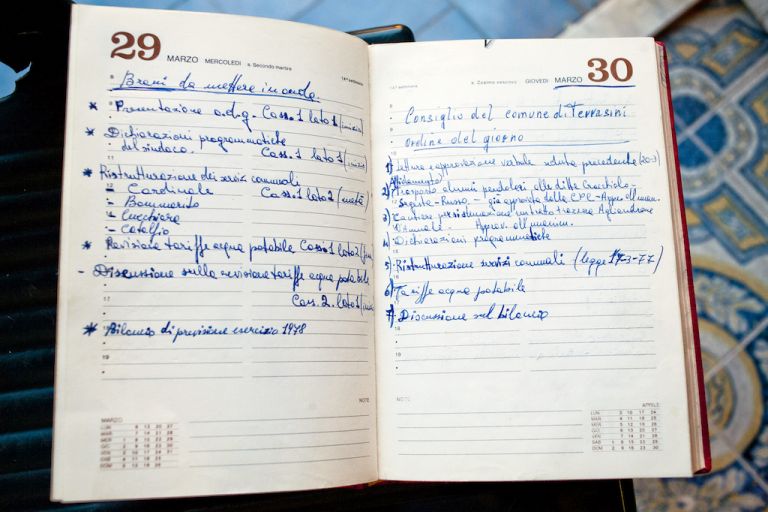 29 MARZO MERCOLEDÌ s. Secondo martire
Brani da mettere in onda.
* Presentazione o.d.g. Cass. 1 lato 1 (inizio)
* Dichiarazioni programmatiche
del sindaco. Cass. 1 lato 1
* Ristrutturazione dei servizi comunali
- Cardinale Cass. 1 lato 2 (metà)
- Bommarito
- Cucchiara
- Catalfio
* Revisione tariffe acqua potabile Cass. 1 lato 2
- Discussione sulla revisione tariffe acqua potabile
Cass. 2. lato 1
* Bilancio di previsione esercizio 1978
NOTE
MARZO
LUN 6 13 20 27
MAR 7 14 21 28
MER 1 8 15 22 29
GIO 2 9 16 23 30
VEN 3 10 17 24 31
SAB 4 11 18 25
DOM 5 12 19 26
GIOVEDÌ MARZO 30
Consiglio del comune di Terrasini
ordine del giorno
1) Lettura e approvazione verbale seduta precedente (20-3)
Affidamento
2) Trasporto alunni pendolari alla ditta
Segesta-Russo - già approvata dalla C.P.C.-
3) Cantiere
4) Dichiarazioni programmatiche
5) Ristrutturazione servizi comunali (legge 17-3-77)
6) Tariffe acqua potabile
7) Discussione sul bilancio
NOTE
APRILE
LUN 3 10 17 24
MAR 4 11 18 25
MER 5 12 19 26
GIO 6 13 20 27
VEN 7 14 21 28
SAB 1 8 15 22 29
DOM 2 9 16 23 30